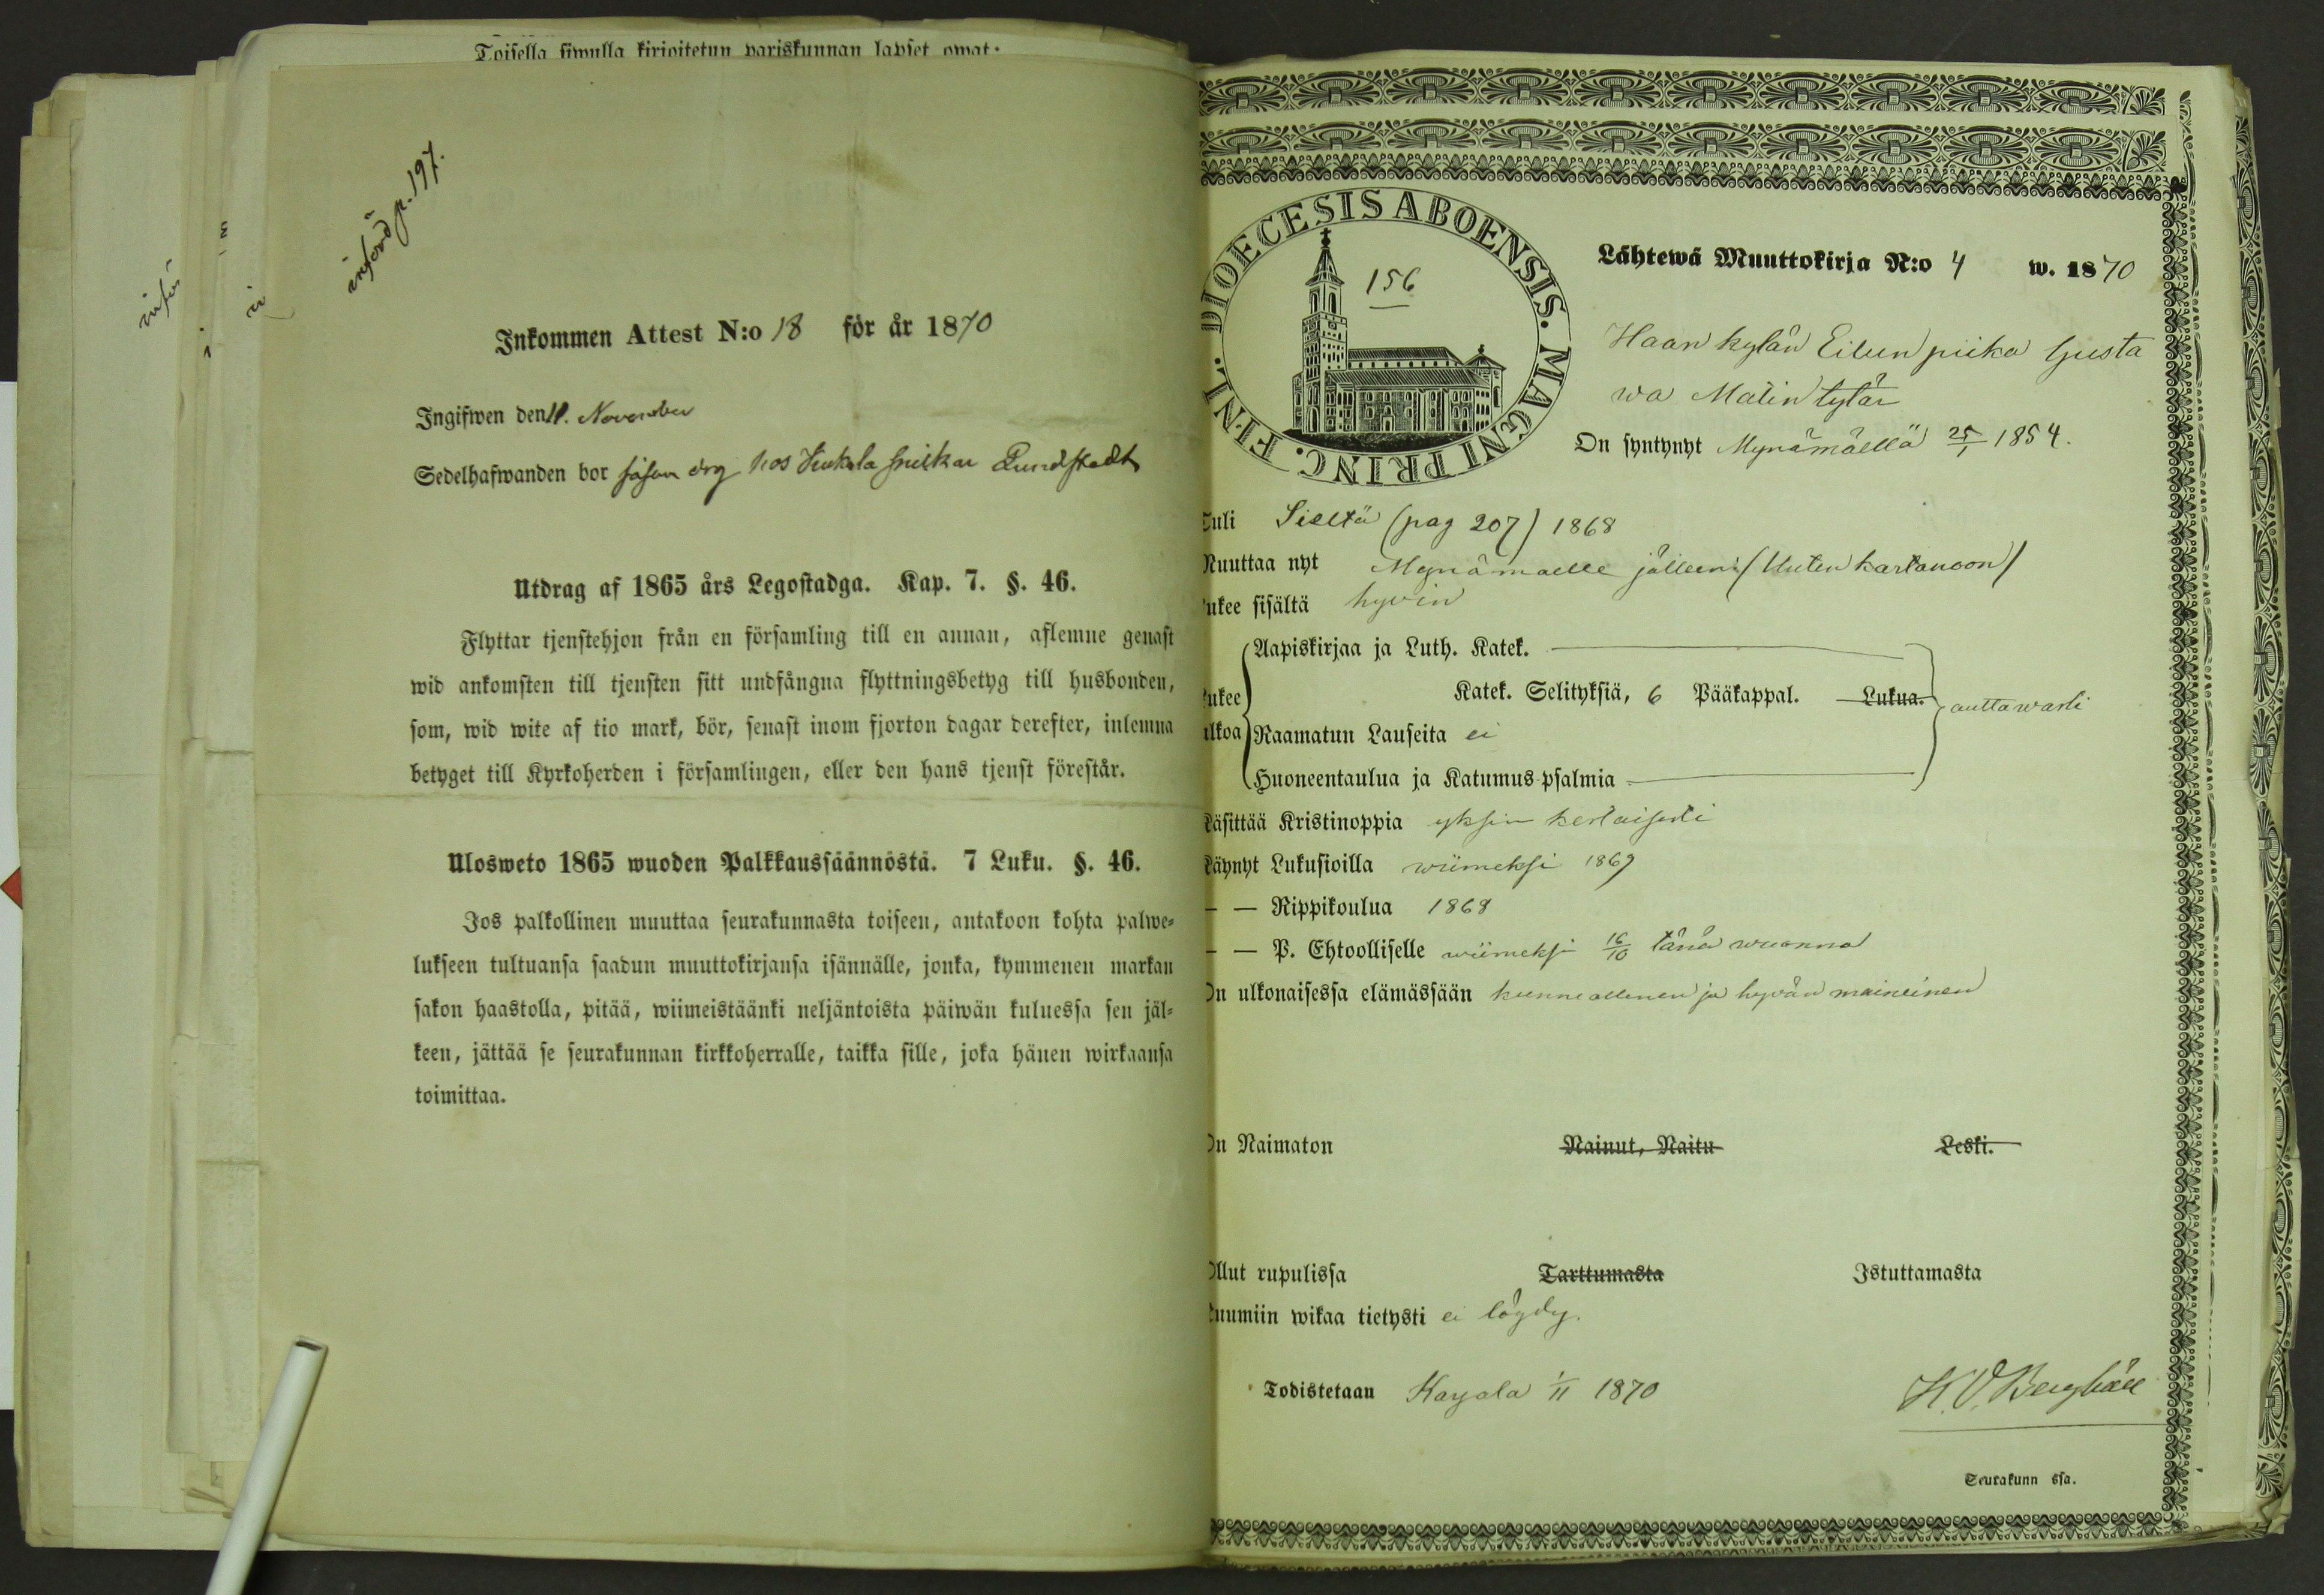 Toisella siwulla kirjoitetun pariskunnan lapset owat:
införd p. 197.
Inkommen Attest N:o 18 för år 1870
Ingifwen den 11. November
Sedelhafwanden bor såsom drg hos Lundstedt
Utdrag af 1865 års Legostadga. Kap. 7. §. 46.
Flyttar tjenstehjon från en församling till en annan, aflemne genast
wid ankomsten till tjensten sitt undfångna flyttningsbetyg till husbonden,
som, wid wite af tio mark, bör, senast inom fjorton dagar derefter, inlemna
betyget till Kyrkoherden i församlingen, eller den hans tjenst förestår.
Ulosweto 1865 wuoden Palkkaussäännöstä. 7 Luku. §. 46.
Jos palkollinen muuttaa seurakunnasta toiseen, antakoon kohta palwe-
lukseen tultuansa saadun muuttokirjansa isännälle, jonka, kymmenen markan
sakon haastolla, pitää, wiimeistäänki neljäntoista päiwän kuluessa sen jäl-
keen, jättää se seurakunnan kirkkoherralle, taikka sille, joka hänen wirkaansa
toimittaa.
DIOECESIS ABOENSIS. MAGNI PRINC. FINL.
156
Lähtewä Muuttokirja N:o 4 w. 1870
Haan kylän Eilun piika Gusta
wa Matin tytär
On syntynyt Mynämäellä 25/1 1854.
Tuli Sieltä (pag 207) 1868
Muuttaa nyt Mynämaelle jälleen (Uuten kartanoon)
Lukee sisältä hyvin
Aapiskirjaa ja Luth. Katek.
Lukee Katek. Selityksiä, 6 Pääkappal. Lukua. auttawasti
ulkoa Raamatun Lauseita ei
Huoneentaulua ja Katumus-psalmia
Käsittää Kristinoppia yksin kertaisesti
Käynyt Lukusioilla wiimeksi 1869
— — Rippikoulua 1868
— — P. Ehtoolliselle wiimeksi 16/10 tänä wuonna
On ulkonaisessa elämässään kunniallinen ja hyvän maineinen
On Naimaton Nainut, Naitu Leski.
Ollut rupulissa Tarttumasta Istuttamasta
Ruumiin wikaa tietysti ei löydy.
Todistetaan Karjala 1/11 1870
K. V. Bergläll
Seurakunn ssa.